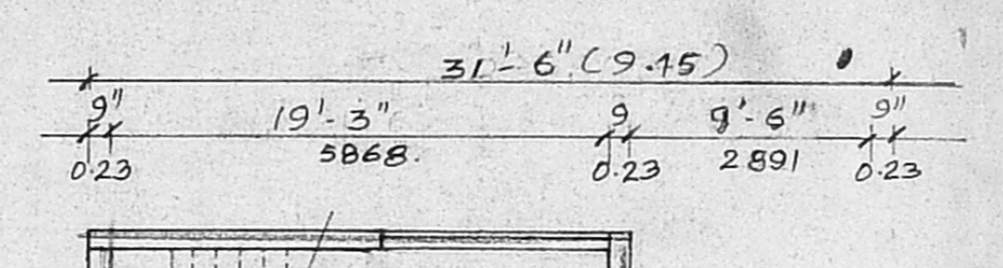 31'-6" (9.45)
9" 19'-3" 9 9'-6" 9"
0.23 5868. 0.23 2891 0.23